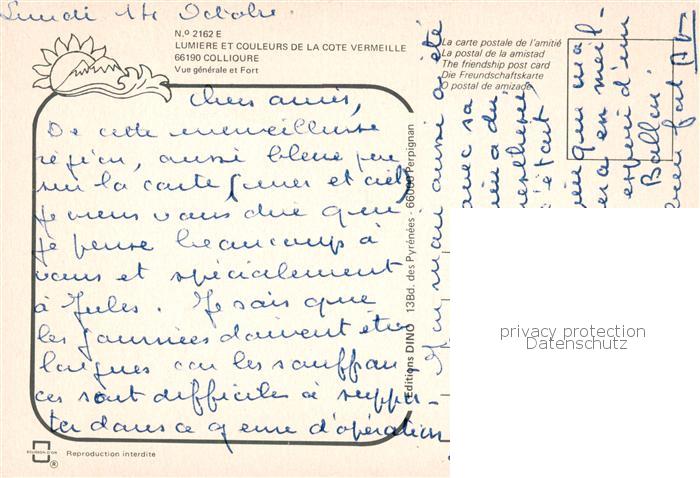 Lundi 14 Octobre
N.º 2162 E
LUMIERE ET COULEURS DE LA COTE VERMEILLE
66190 COLLIOURE
Vue générale et Fort
La carte postale de l'amitié
La postal de la amistad
The friendship post card
Die Freundschaftskarte
O postal de amizade
Chers amis,
De cette merveilleuse
région, aussi bleue que
sur la carte (mer et ciel)
je viens vous dire que
je pense beaucoup à
vous et spécialement
à Jules. Je sais que
les journées doivent être
longues car les souffran
ces sont difficiles à suppor-
ter dans ce genre d'opération.
Mon mari aussi a été
avec sa
c'était
que ma
en meil-
espoir d'un
Ballon
bien fait
Editions DINO 13Bd. des Pyrénées - 66000 Perpignan
privacy protection
Datenschutz
ECUSSON D'OR
®
Reproduction interdite